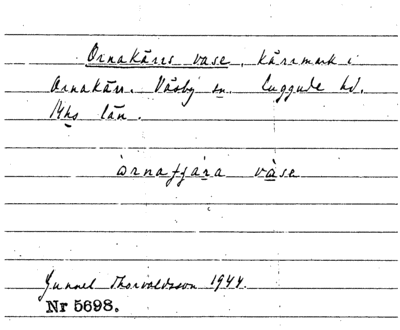 Ornakärrs vase, kärrmark i
Ornakärr. Väsby sn. Luggude hd.
Mhs län.
òrnaʃɟára vàse
Gunnel Thorvaldsson 1944.
Nr 5698.